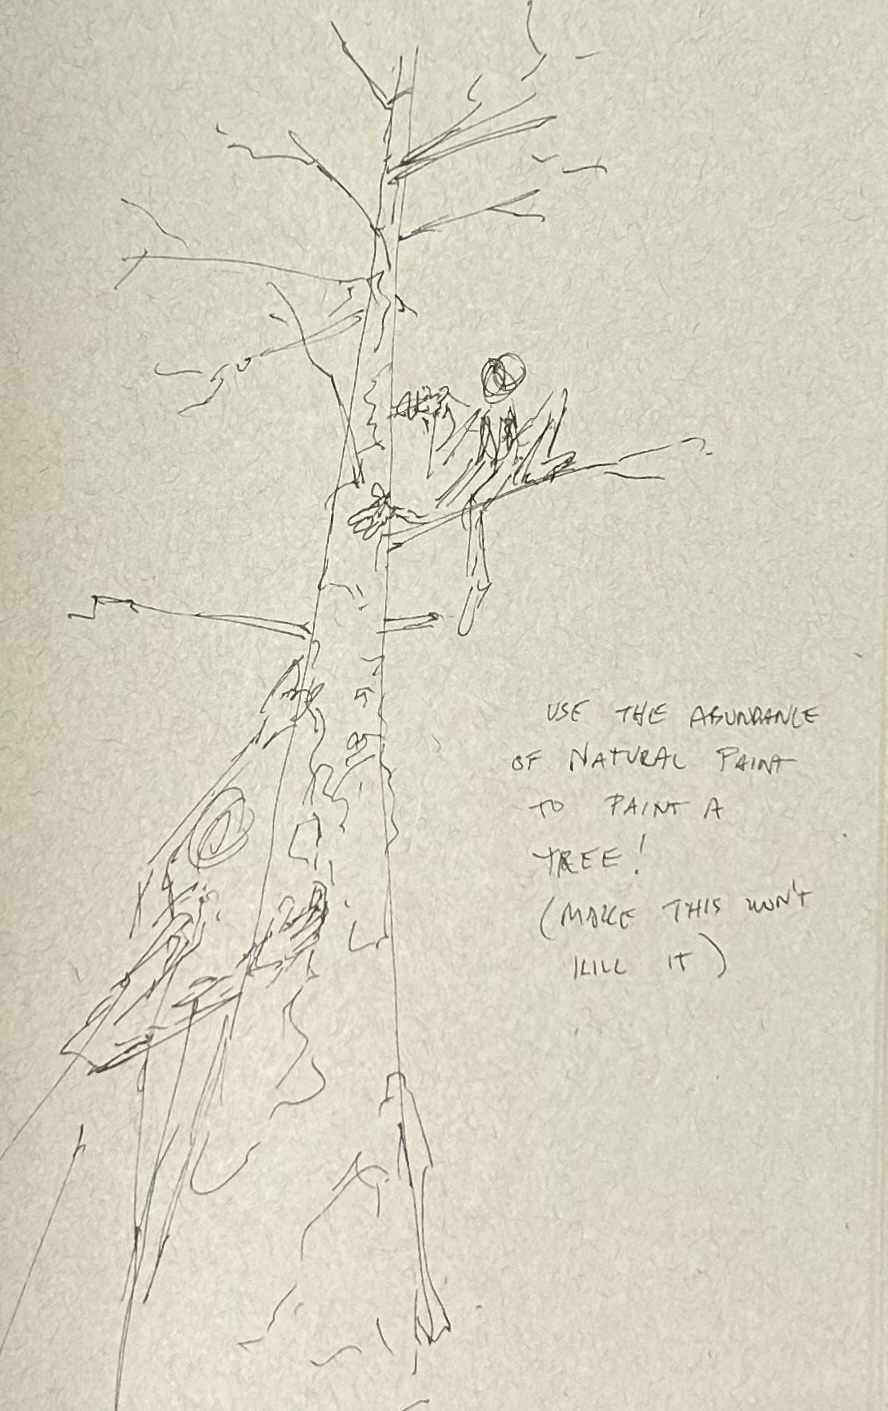 USE THE ABUNDANCE
OF NATURAL PAINT
TO PAINT A
TREE!
(MAKE THIS WON'T
KILL IT)